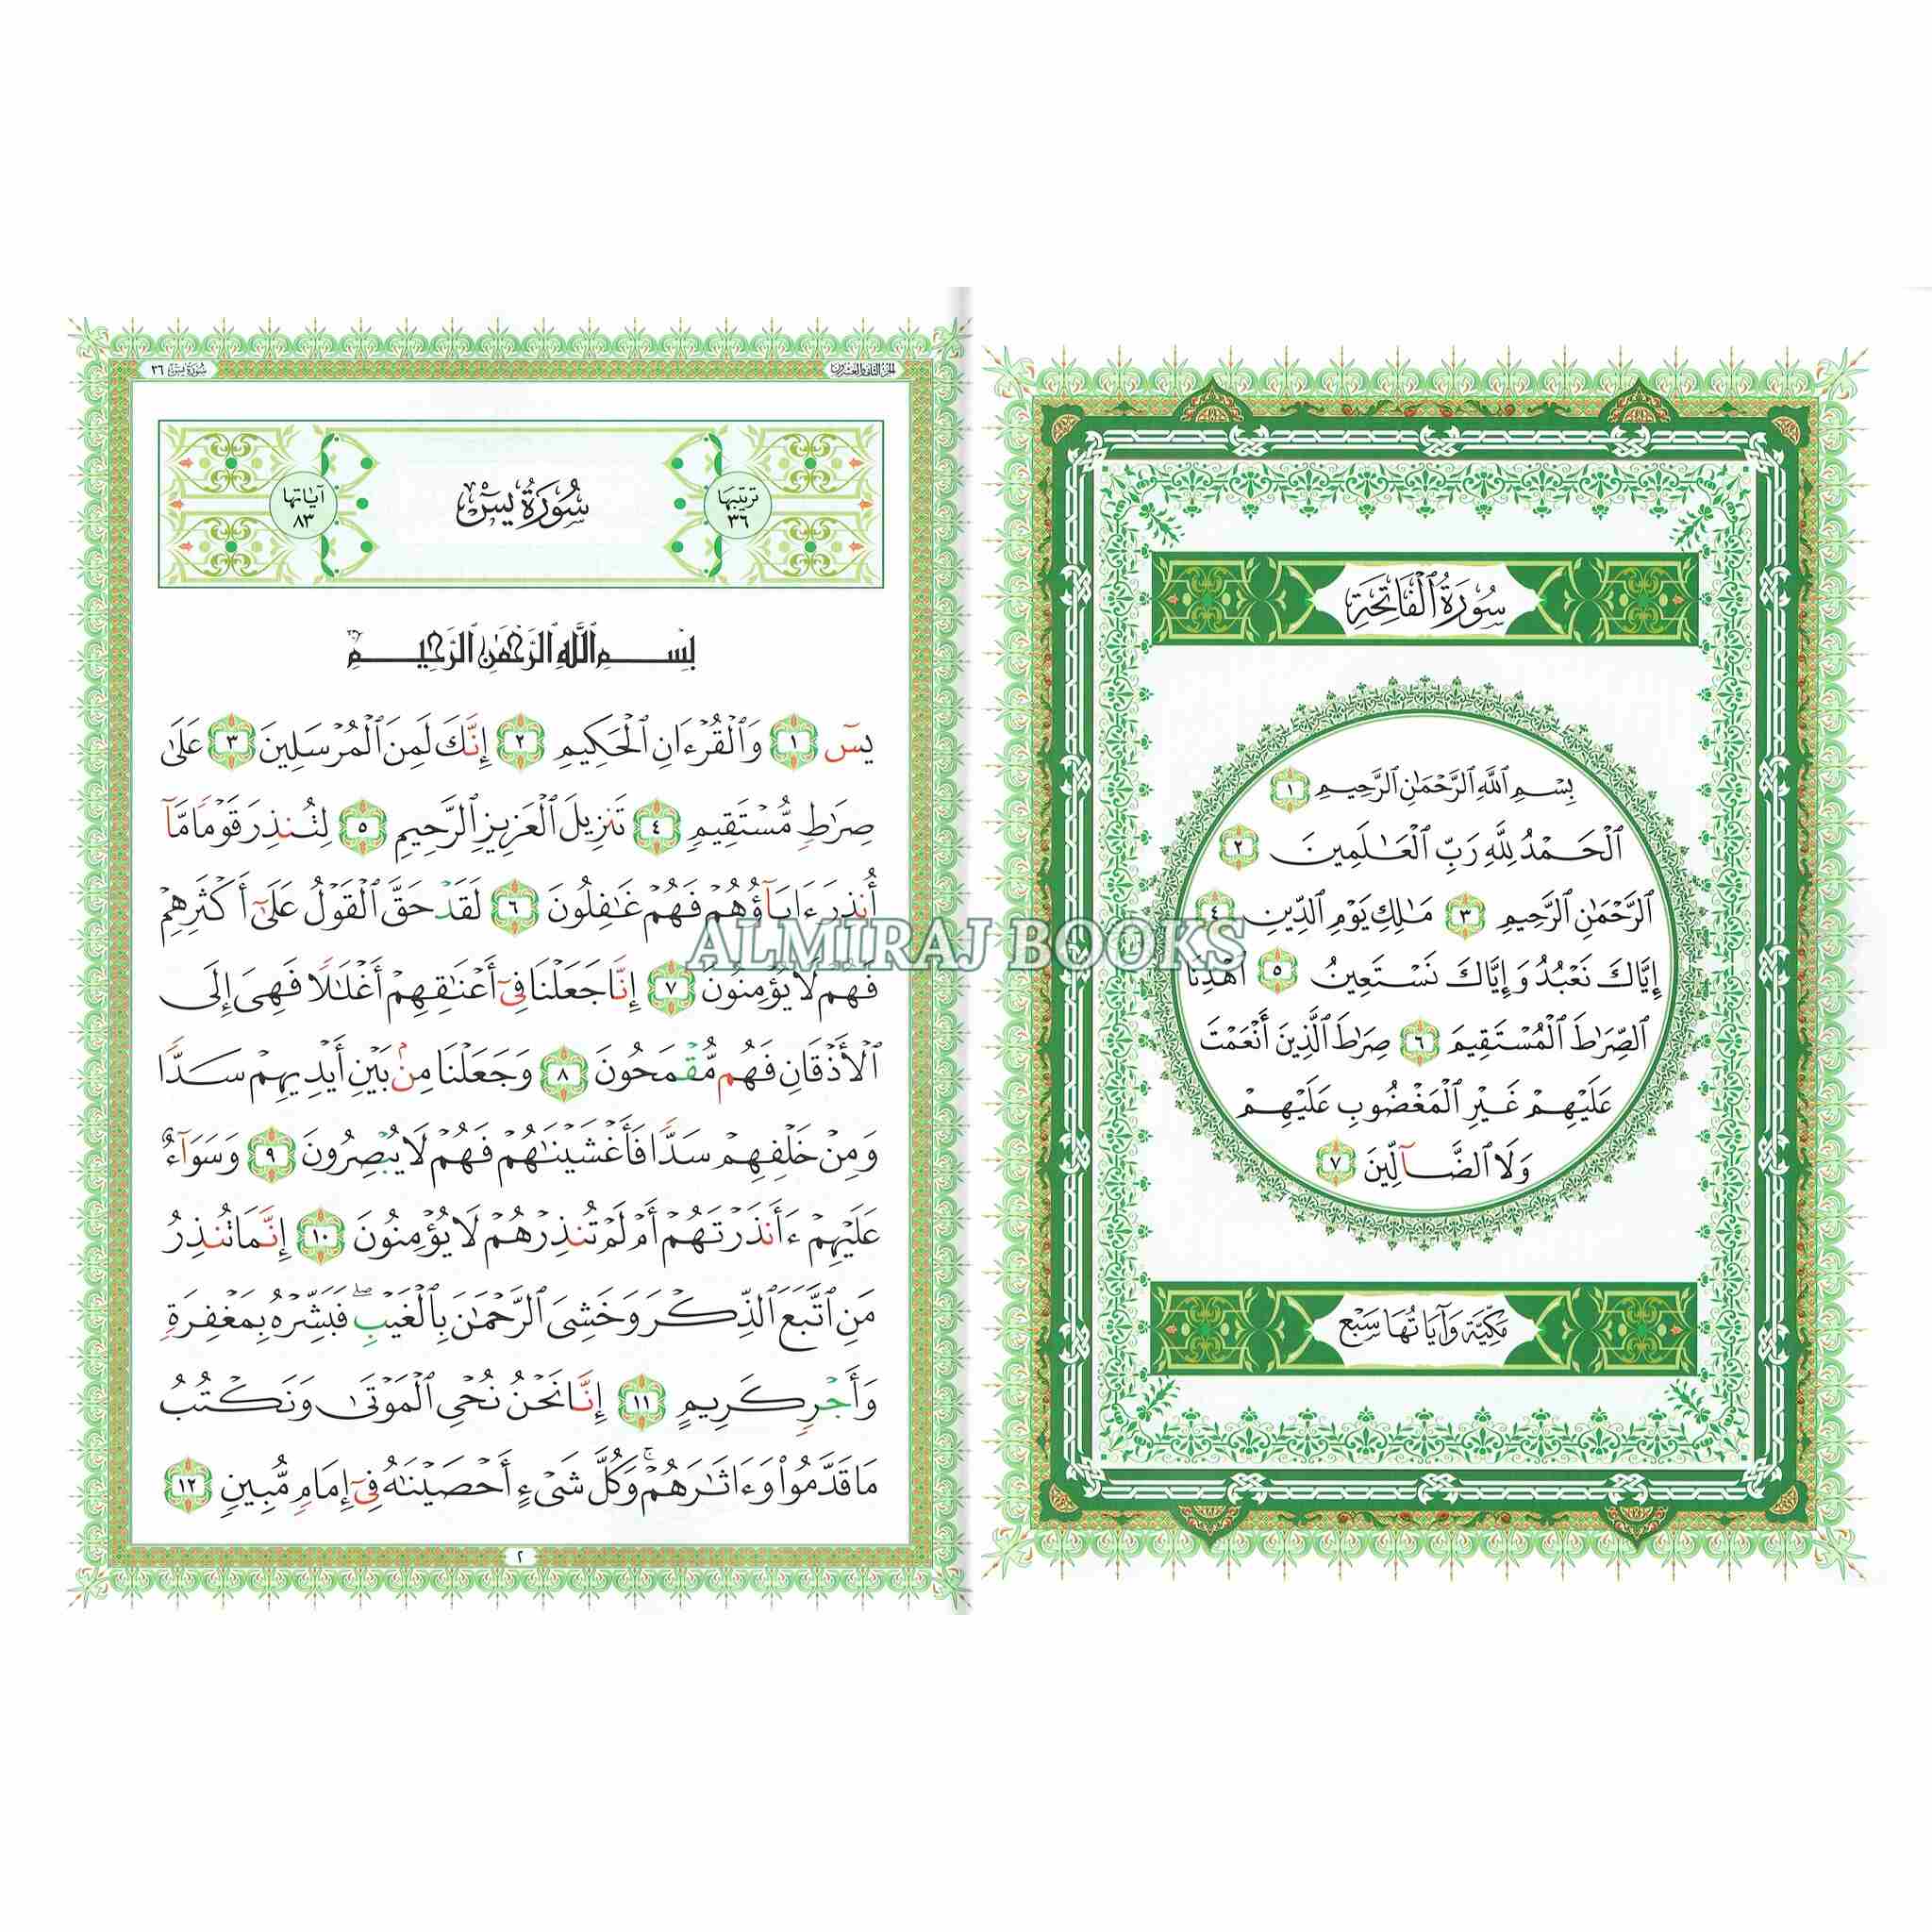 سُورَةُ ٱلْفَاتِحَةِ
بِسْمِ ٱللَّهِ ٱلرَّحْمَٰنِ ٱلرَّحِيمِ ١
ٱلْحَمْدُ لِلَّهِ رَبِّ ٱلْعَٰلَمِينَ ٢
ٱلرَّحْمَٰنِ ٱلرَّحِيمِ ٣ مَٰلِكِ يَوْمِ ٱلدِّينِ ٤
إِيَّاكَ نَعْبُدُ وَإِيَّاكَ نَسْتَعِينُ ٥ ٱهْدِنَا
ٱلصِّرَٰطَ ٱلْمُسْتَقِيمَ ٦ صِرَٰطَ ٱلَّذِينَ أَنْعَمْتَ
عَلَيْهِمْ غَيْرِ ٱلْمَغْضُوبِ عَلَيْهِمْ
وَلَا ٱلضَّآلِّينَ ٧
مَكِّيَّة وَآيَاتُهَا سَبْع
الجزء الثاني والعشرون
سُورَةُ يسٓ ٣٦
ترتيبها ٣٦
سُورَةُ يسٓ
آياتها ٨٣
بِسْمِ ٱللَّهِ ٱلرَّحْمَٰنِ ٱلرَّحِيمِ
يسٓ ١ وَٱلْقُرْءَانِ ٱلْحَكِيمِ ٢ إِنَّكَ لَمِنَ ٱلْمُرْسَلِينَ ٣ عَلَىٰ
صِرَٰطٍ مُّسْتَقِيمٍ ٤ تَنزِيلَ ٱلْعَزِيزِ ٱلرَّحِيمِ ٥ لِتُنذِرَ قَوْمًا مَّآ
أُنذِرَ ءَابَآؤُهُمْ فَهُمْ غَٰفِلُونَ ٦ لَقَدْ حَقَّ ٱلْقَوْلُ عَلَىٰٓ أَكْثَرِهِمْ
فَهُمْ لَا يُؤْمِنُونَ ٧ إِنَّا جَعَلْنَا فِىٓ أَعْنَٰقِهِمْ أَغْلَٰلًا فَهِىَ إِلَى
ٱلْأَذْقَانِ فَهُم مُّقْمَحُونَ ٨ وَجَعَلْنَا مِنۢ بَيْنِ أَيْدِيهِمْ سَدًّا
وَمِنْ خَلْفِهِمْ سَدًّا فَأَغْشَيْنَٰهُمْ فَهُمْ لَا يُبْصِرُونَ ٩ وَسَوَآءٌ
عَلَيْهِمْ ءَأَنذَرْتَهُمْ أَمْ لَمْ تُنذِرْهُمْ لَا يُؤْمِنُونَ ١٠ إِنَّمَا تُنذِرُ
مَنِ ٱتَّبَعَ ٱلذِّكْرَ وَخَشِىَ ٱلرَّحْمَٰنَ بِٱلْغَيْبِ ۖ فَبَشِّرْهُ بِمَغْفِرَةٍ
وَأَجْرٍ كَرِيمٍ ١١ إِنَّا نَحْنُ نُحْىِ ٱلْمَوْتَىٰ وَنَكْتُبُ
مَا قَدَّمُوا۟ وَءَاثَٰرَهُمْ ۚ وَكُلَّ شَىْءٍ أَحْصَيْنَٰهُ فِىٓ إِمَامٍ مُّبِينٍ ١٢
٢
ALMIRAJ BOOKS